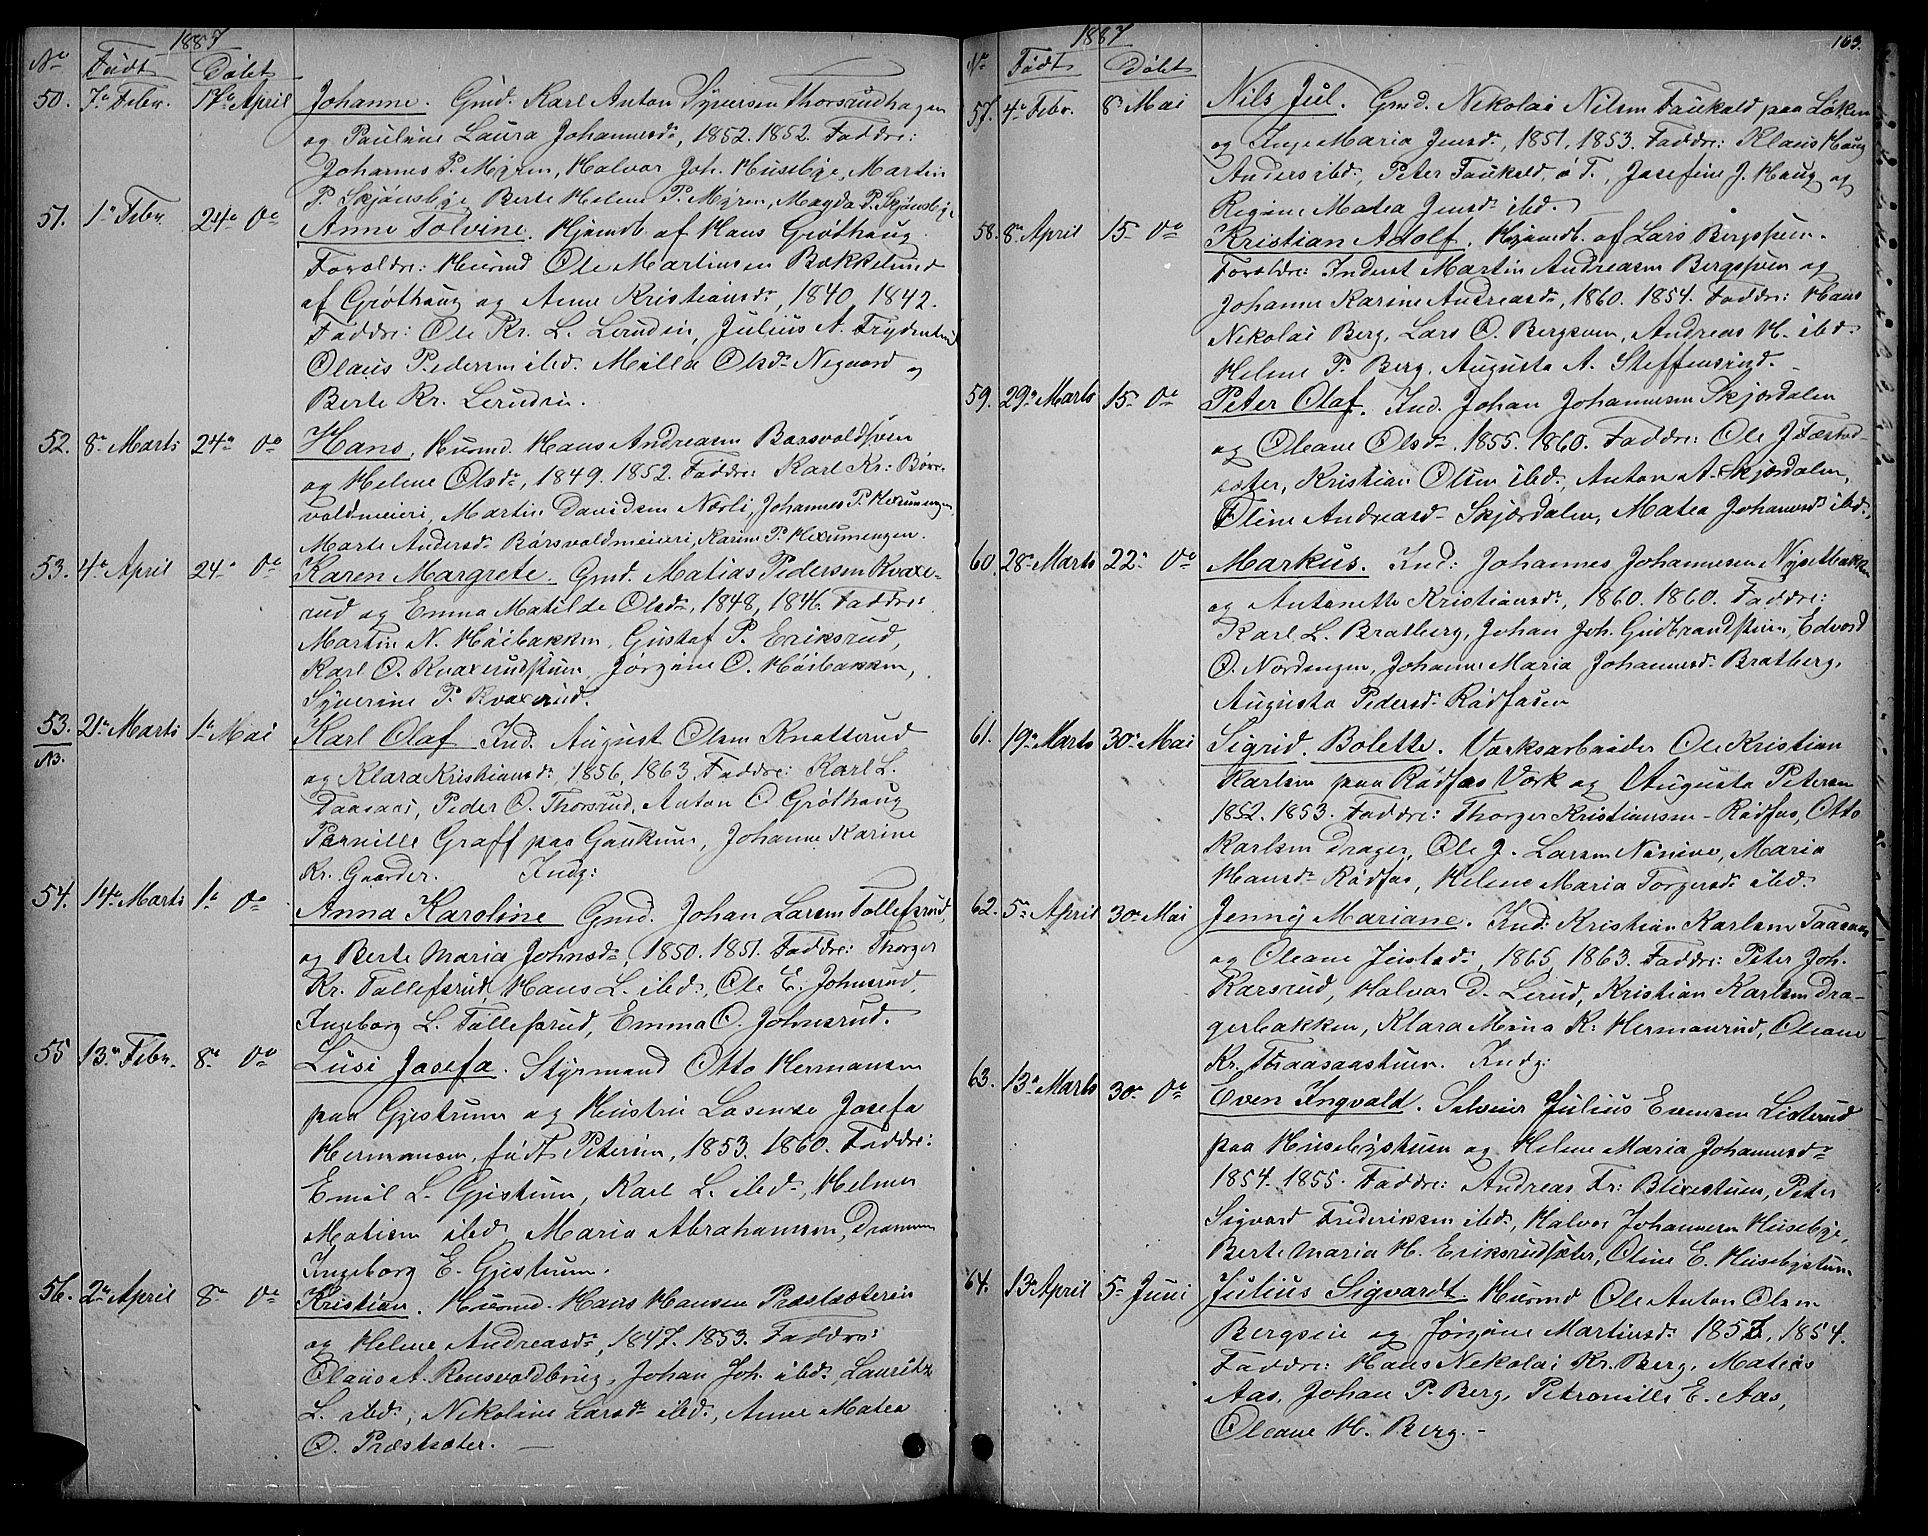 1887
No Født Døbt
50. 7de Febr. 17de April Johanne. Gmd. Karl Anton Syversen Thorsrudhagen
og Pauline Laura Johannesdr, 1852. 1852. Faddre:
Johannes P. Myren, Halvor Joh. Husebye, Martin
P. Skjønsbye, Berte Helene P. Myren, Magda P. Skjønsbye
51. 1ste Febr. 24de do Anne Tolvine. Hjemdb. af Hans Grøthaug
Forældre: Husmd Ole Martinsen Bækkelund
af Grøthaug og Anne Kristiansdr, 1840, 1842.
Faddre: Ole Kr. L. Lerudn, Julius A.
Olaus Pedersen ibd. Milla Olsdr Nygaard og
Berte Kr. Lerudn.
52. 8de Marts 24de do Hans, Husmd. Hans Andreasen Barsvoldsven
og Helene Olsdr, 1849. 1852. Faddre: Karl Kr: Børs-
voldmeieri, Martin Davidsen Nærli, Johannes P.
Marte Andersdr Børsvoldmeieri, Karine P.
53. 4de April 24de do Karen Margrete. Gmd. Matias Pedersen Kvaxe-
rud og Emma Matilde Olsdr, 1848, 1846. Faddre:
Martin N. Høibakken, Gustaf P. Eriksrud,
Karl O. Kvaxerudstuen, Jørgine O. Høibakken,
Syverine P. Kvaxerud.
53. 21de Marts 1ste Mai Karl Olaf Ind. August Olsen Knatterud
No. og Klara Kristiansdr 1856, 1863. Faddre: Karl L.
Taasaas, Peder O. Thorsrud, Anton O. Grøthaug
Pernille Graff paa Gaukum, Johanne Karine
Kr. Gaarder. Indg:
54. 14de Marts 1ste do Anna Karoline Gmd. Johan Larsen Tollefsrud,
og Berte Maria Johnsdr, 1850. 1851. Faddre: Thorger
Kr. Tollefsrud, Hans L. ibd., Ole E. Johnsrud,
Ingeborg L. Tollefsrud, Emma O. Johnsrud.
55 13de Febr. 8de do Lusi Josefa. Styrmand Otto Hermansen
paa Gjestrum og Hustru Josefa
Hermansen, født Petersen, 1853. 1860. Faddre:
Emil L. Gjestrum, Karl L. ibd., Helmer
Matisen ibd, Maria Abrahamsen, Drammen
Ingeborg E. Gjestrum.
56. 2den April 8de do Kristian. Husmd. Hans Hansen Præstsæterein
og Helene Andreasdr, 1847. 1853. Faddre:
Olaus A. Rensvoldbrug, Johan Joh. ibd., Lauritz
L. ibd., Nikoline Larsdr ibd., Anne Matea
O. Præstsæter. —
1887 163.
No Født Døbt
57. 4de Febr. 8de Mai Nils Jul. Gmd. Nikolai Nilsen Faukald paa Løken
og Inge Maria Jensdr, 1851, 1853. Faddre: Klaus Haug
Anders ibd., Peter Faukald ø. T., Josefine J. Haug og
Regine Matea Jensdr ibd.
58. 8de April 15 do Kristian Adolf. Hjemdb. af Lars Bergsven.
Forældre: Inderst Martin Andreasen Bergsven og
Johanne Karine Andreasdr, 1860. 1854. Faddre: Hans
Nikolai Berg, Lars O. Bergsven, Andreas H. ibd.
Helene P. Berg, Augusta A. Steffensrud.
59. 29de Marts 15 do Peter Olaf. Ind. Johan Johannesen Skjærdalen
og Oleane Olsdr. 1855. 1860. Faddre: Ole J.
sæter, Kristian Olsen ibd., Anton A. Skjærdalen,
Eline Andreasdr Skjærdalen, Matea Johannesdr ibd.
60. 28de Marts 22de do Markus. Ind: Johannes Johannesen Nysetbakken
og Antonette Kristiansdr, 1860. 1860. Faddre:
Karl L. Bratberg, Johan Joh. Gudbrandstuen, Edvard
O. Nordengen, Johanne Maria Johannesdr Bratberg,
Augusta Pedersdr Rødfosen
61. 19de Marts 30de Mai Sigrid. Bolette. Værksarbeider Ole Kristian
Karlsen paa Rødfos Værk og Augusta Petersen
1852. 1853. Faddre: Thorger Kristiansen Rødfos, Otto
Karlsen Drager, Ole J. Larsen Ninive, Maria
Hansdr Rødfos, Helene Maria Torgersdr ibd.
62. 5te April 30de Mai Jenny Mariane. Ind: Kristian Karlsen Taasaas
og Oleane Jensdr, 1865, 1863. Faddre: Peter Joh.
Karsrud, Halvor D. Lerud, Kristian Karlsen Dra-
gerbakken, Klara Mina K. Hermanrud, Oleane
Kr. Taasaasstuen. Indg:
63. 13de Marts 30de do Even Ingvald. Selveier Julius Evensen Listerud
paa Husebystuen og Helene Maria Johannesdr
1854. 1855. Faddre: Andreas Fr: Blixestuen, Peter
Sigvard Frederiksen ibd, Halvor Johannesen Husebye,
Berte Maria H. Eriksrudsæter, Oline E. Husebystuen
64. 13de April 5te Juni Julius Sigvardt. Husmd Ole Anton Olsen
Bergseie og Jørgine Martinsdr 1857, 1854.
Faddre: Hans Nekolai Kr. Berg, Matias
Aas, Johan P. Berg, Petronille E. Aas,
Oleane H. Berg. —